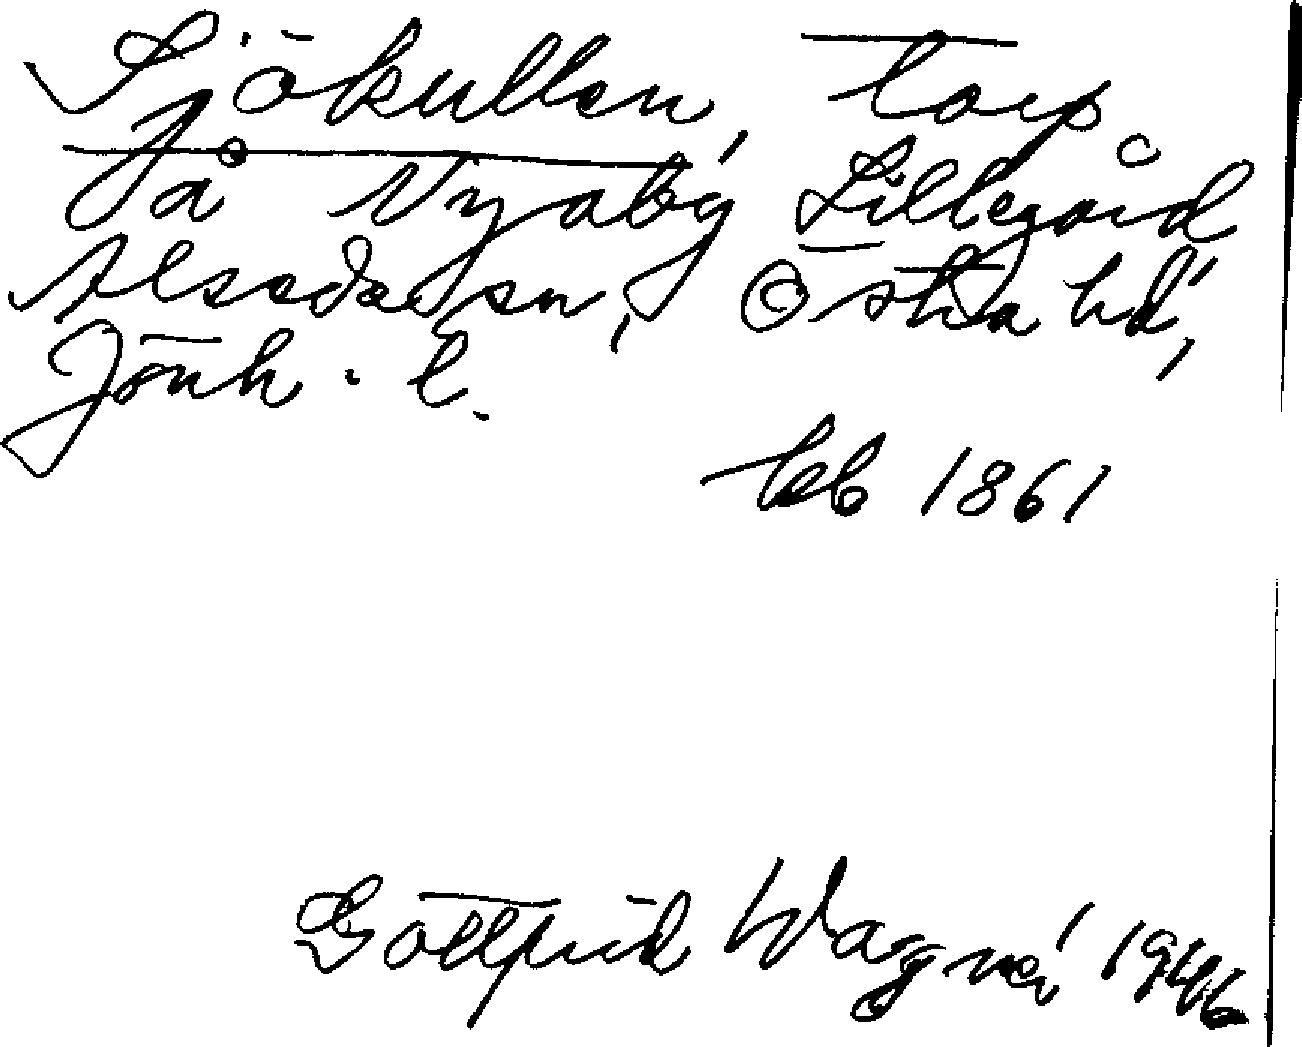 Sjökullen, torp
på Nyaby Lillegård,
Alseda sn, Östra hd,
Jönk. l.
kb 1861
Gottfrid Wagnér 1946